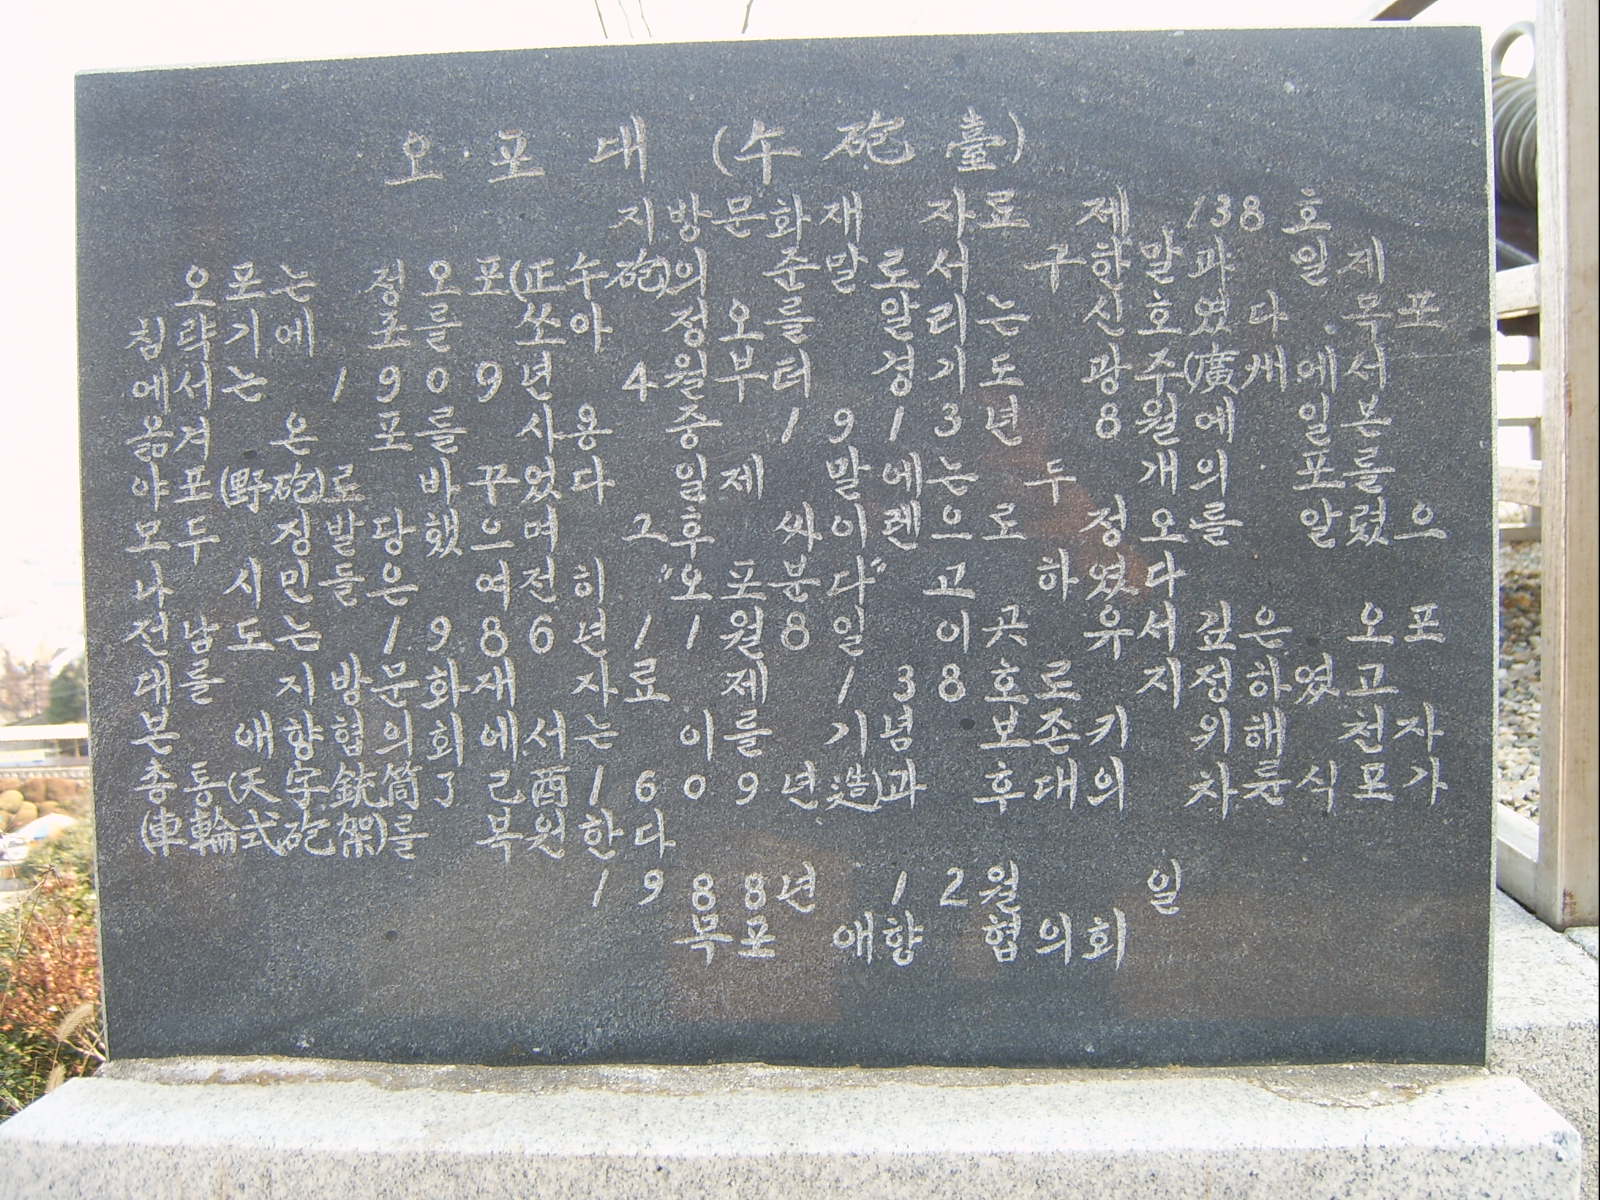 오·포 대 (午 砲 臺)
지방문화재 자료 제 138 호
오포는 정오포(正午砲)의 준말로서 구한말과 일제
침략기에 포를 쏘아 정오를 알리는 신호였다 목포
에서는 1909년 4월부터 경기도 광주(廣州)에서
옮겨 온 포를 사용 중 1913년 8월에 일본
야포(野砲)로 바꾸었다 일제 말에는 두 개의 포를
모두 정발당했으며 그후 싸이렌으로 정오를 알렸으
나 시민들은 여전히 "오포분다"고 하였다
전남도는 1986년 11월8일 이곳 유서깊은 오포
대를 지방문화재 자료 제 138호로 지정하였고
본 애향협의회에서는 이를 기념 보존키 위해 천자
총통(天字銃筒 己酉 1609년造)과 후대의 차륜식포가
(車輪式砲架)를 복원한다
1988년 12월 일
목포 애향 협의회